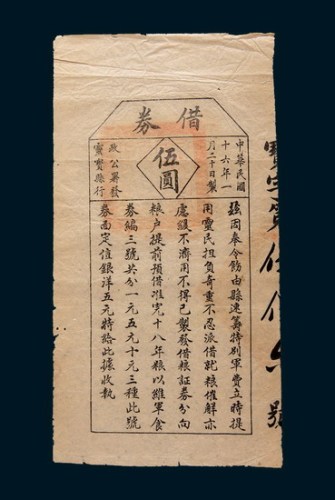 借券
中華民國
十六年一
月二十日製
伍圓
靈寶縣行
政公署發
茲因奉令飭由縣速籌特別軍費立時提
用靈民担負奇重不忍派借就粮催解亦
慮緩不濟用不得已製發借粮証券分向
粮户提前預借准完十八年粮以維軍食
券編三號共分一元五元十元三種此號
券面定值銀洋五元特給此據收执